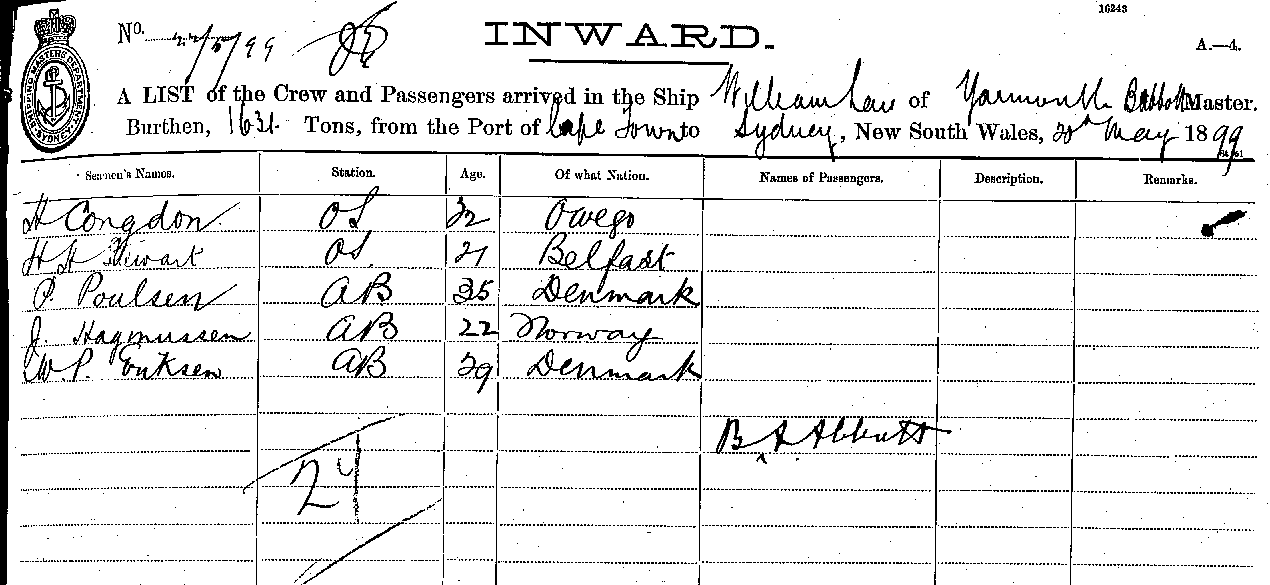 16243
No. 22/5/99
INWARD.
A.—4.
SHIPPING MASTERS DEPARTMENT SYDNEY
A LIST of the Crew and Passengers arrived in the Ship William Law of Yarmouth Babbott Master.
Burthen, 1631 Tons, from the Port of Cape Town to Sydney, New South Wales, 20th May 1899
Seamen's Names. Station. Age. Of what Nation. Names of Passengers. Description. Remarks.
H Congdon OS 32 Owego
H H Stewart OS. 21 Belfast
P. Poulsen AB 35 Denmark
J. Hagmussen AB 22 Norway
W. P. Eriksen AB 29 Denmark
B. A. Abbott
24